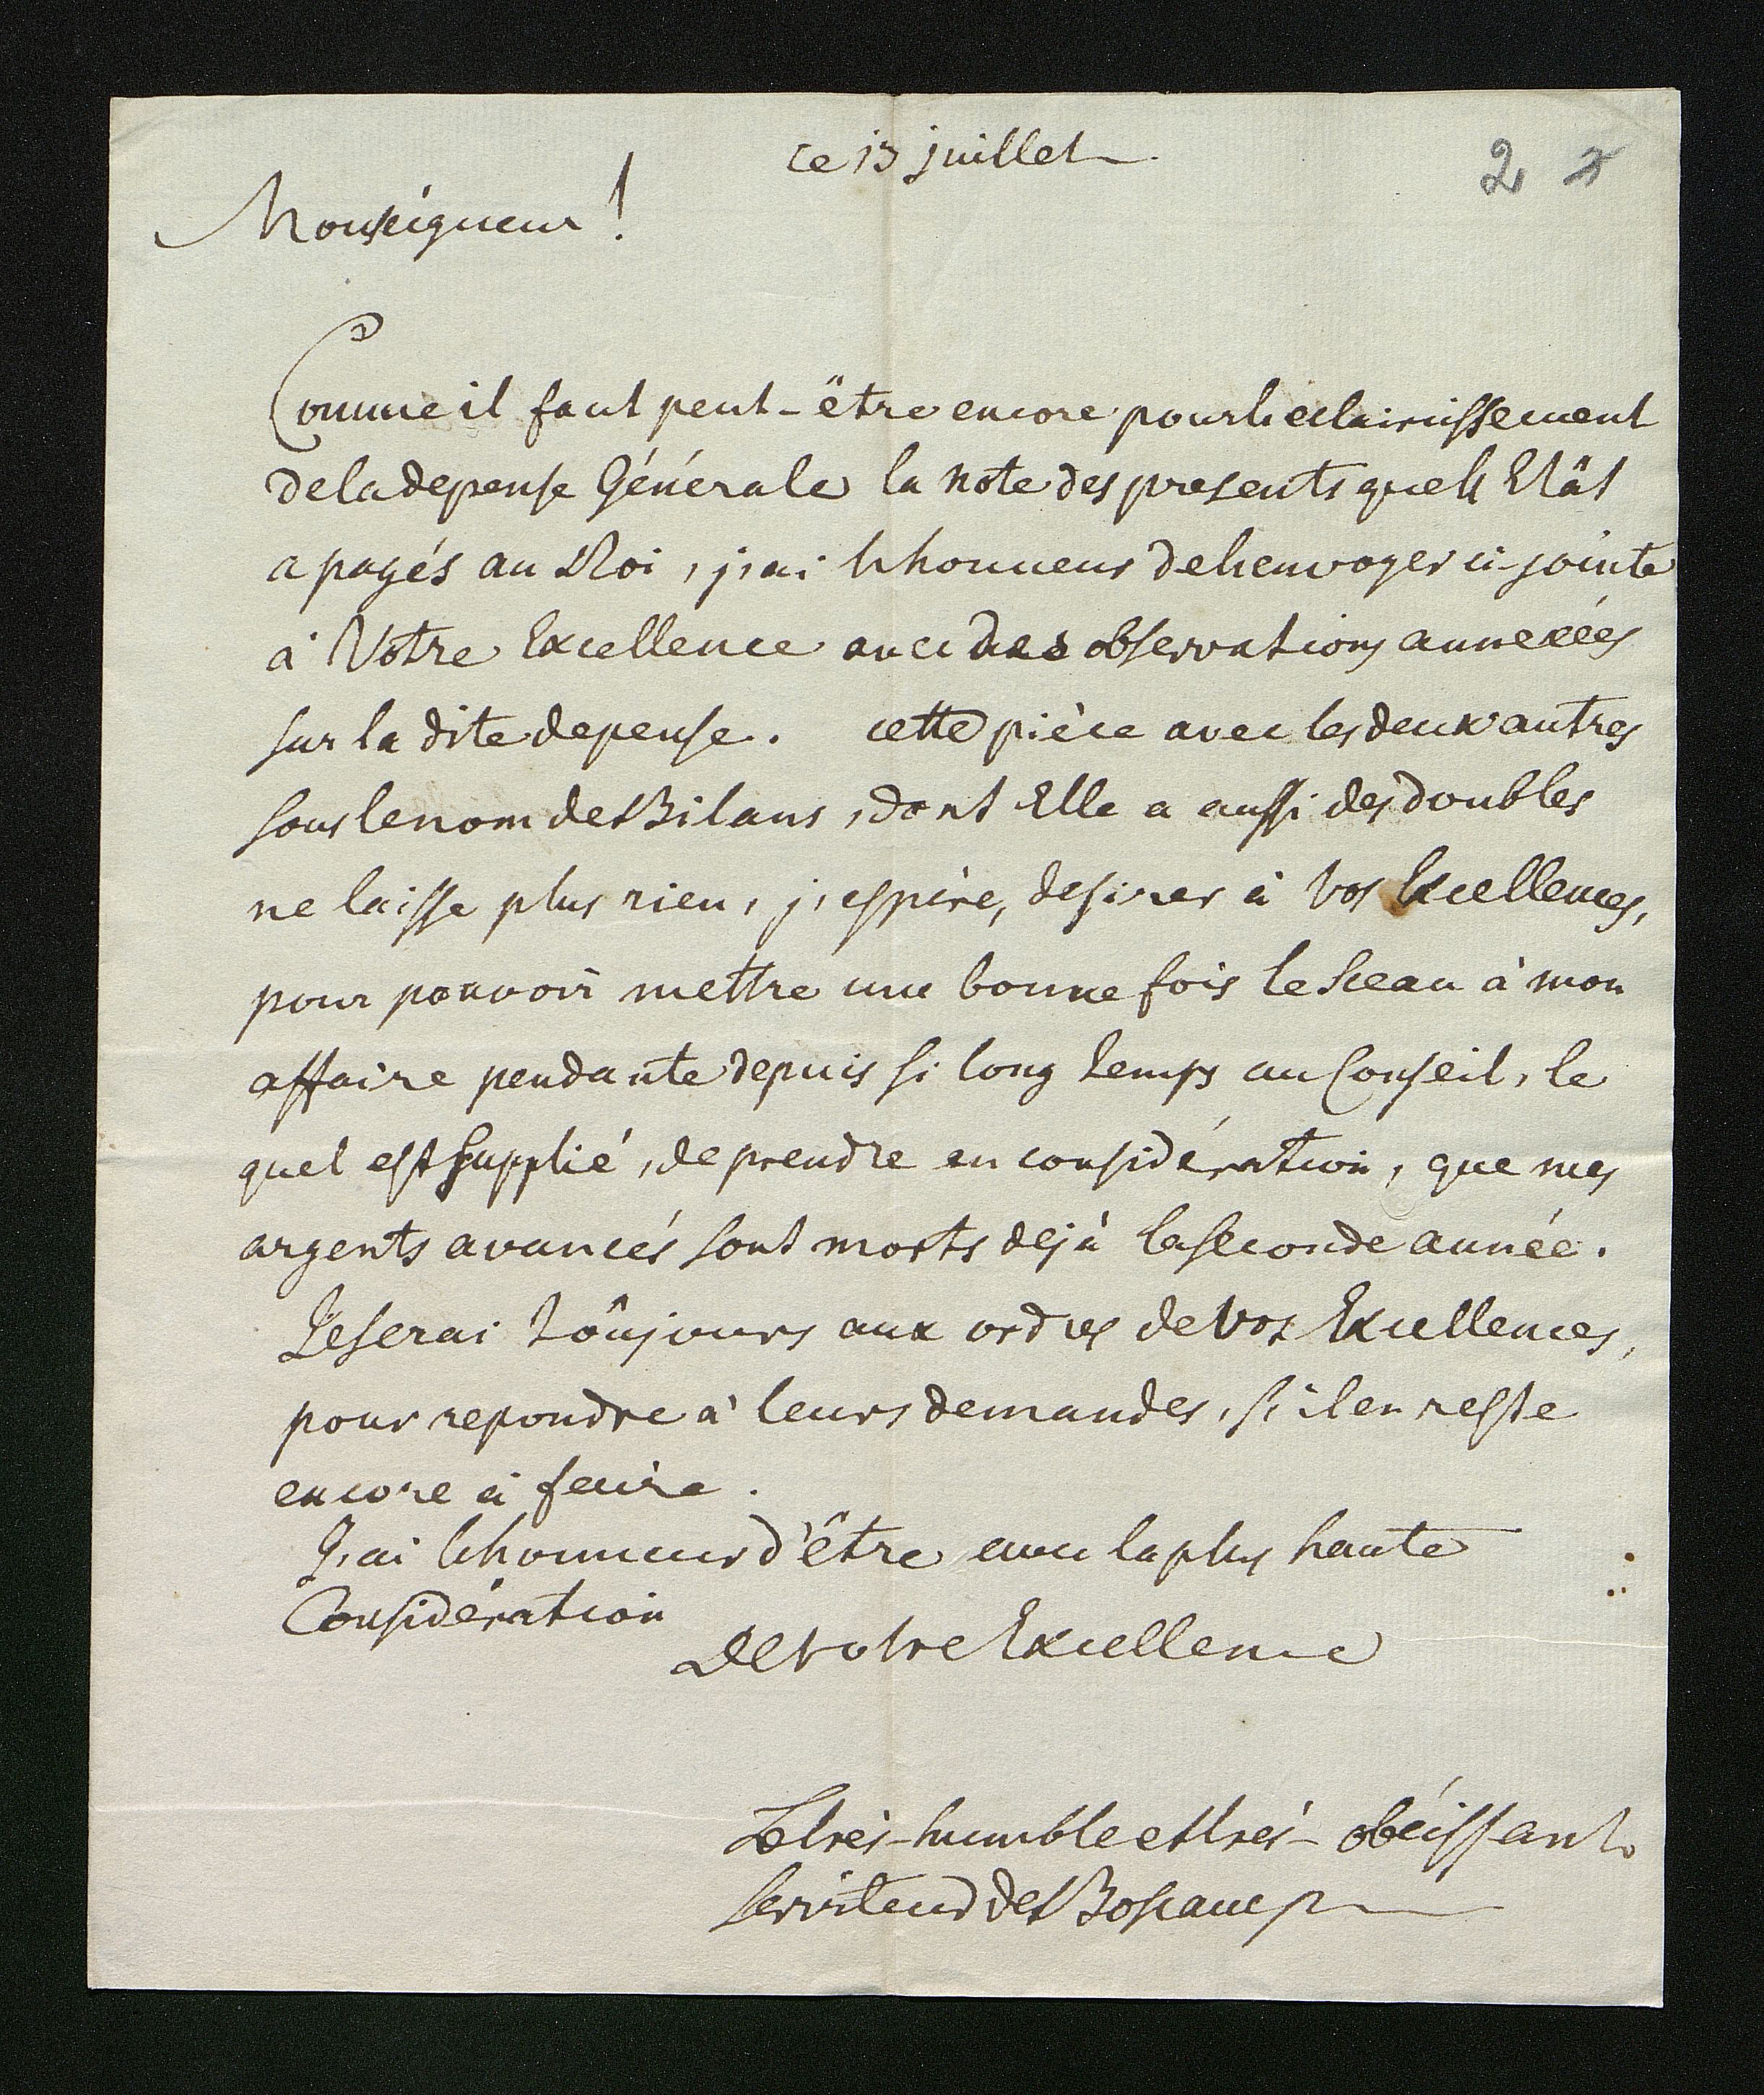 ce 13 juillet
2
Monseigneur !
Comme il faut peut-être encore pour l'eclaircissement
de la depense Générale la note des presents que l'Etât
a payés au Roi, j'ai l'honneur de l'envoyer ci-jointe
à Votre Excellence avec des observations annexées
sur la dite depense. cette pièce avec les deux autres
sous le nom de Bilans, dont Elle a aussi des doubles
ne laisse plus rien, j'espère, desirer à Vos Excellences,
pour pouvoir mettre une bonne fois le Sceau à mon
affaire pendante depuis si long temps au Conseil, le
quel est supplié, de prendre en considération, que mes
argents avancés sont morts dejà la seconde année.
Je serai toûjours aux ordres de Vos Excellences,
pour repondre à leurs demandes, s'il en reste
encore à faire.
J'ai l'honneur d'être avec la plus haute
Considération
De Votre Excellence
Le très-humble et très-obéissant
serviteur de Boscamp